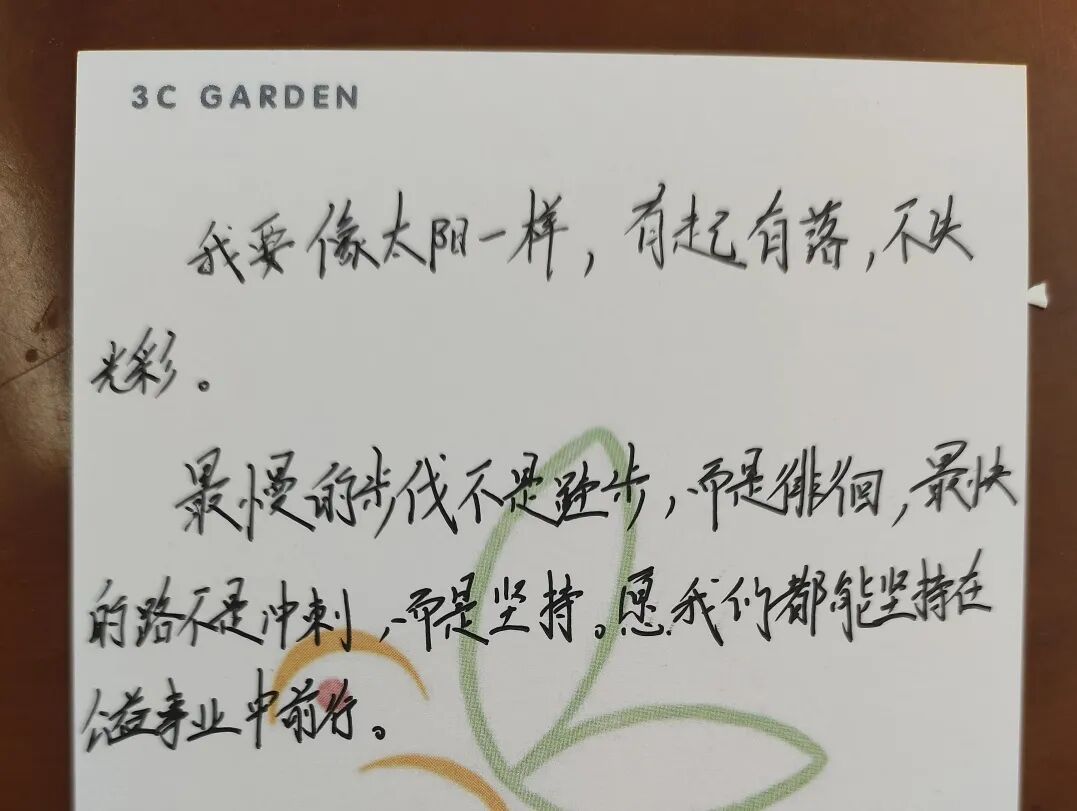 3C GARDEN
我要像太阳一样，有起有落，不失
光彩。
最慢的步伐不是跬步，而是徘徊，最快
的路不是冲刺，而是坚持。愿我们都能坚持在
公益事业中前行。